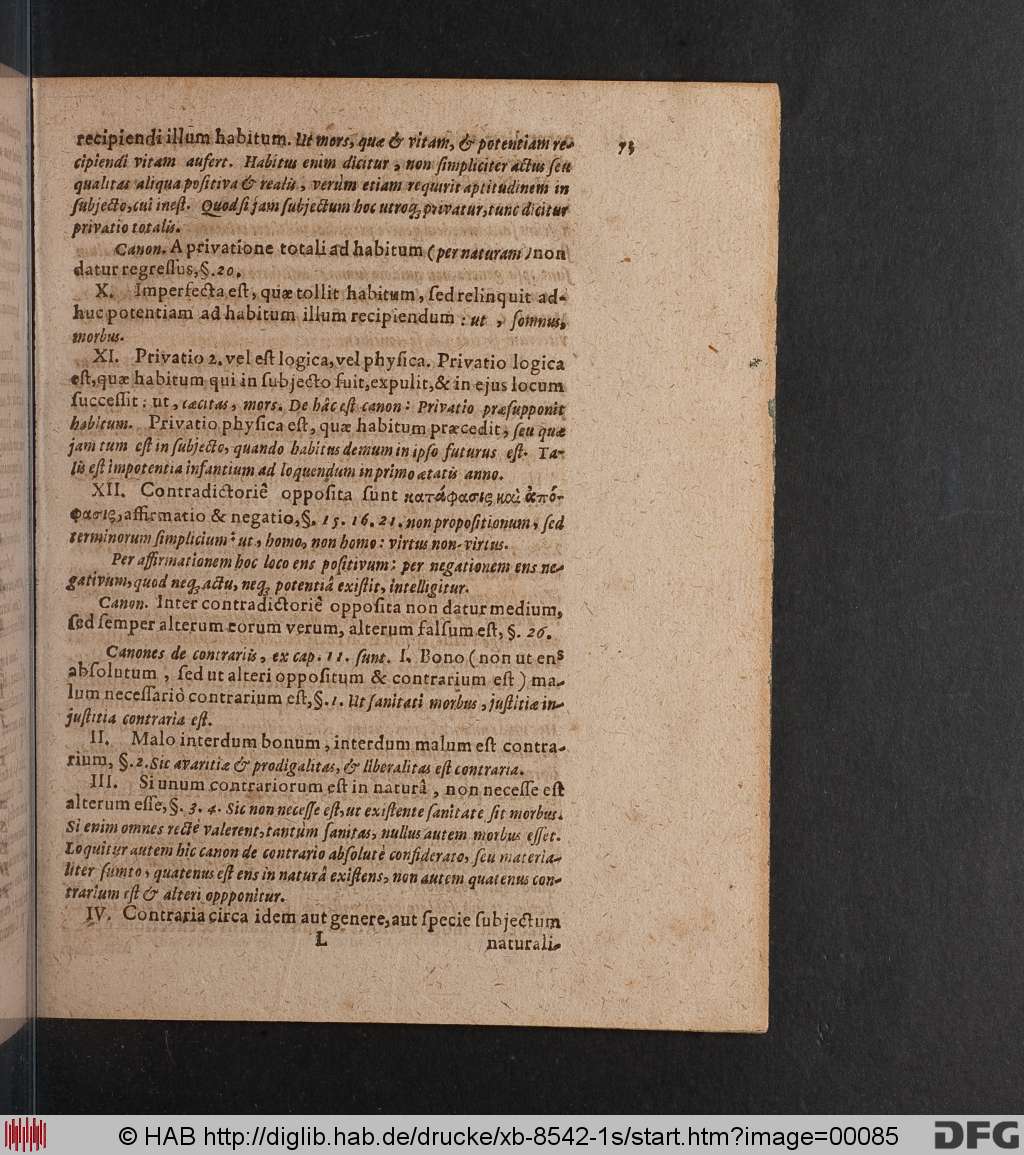 recipiendi illum habitum. Ut mors, quæ & vitam, & potentiam re-
73
cipiendi vitam aufert. Habitus enim dicitur, non ſimpliciter actus ſeu
qualitas aliqua poſitiva & realis, verùm etiam requirit aptitudinem in
ſubjecto, cui ineſt. Quod ſi jam ſubjectum hoc utroq; privatur, tunc dicitur
privatio totalis.
Canon. A privatione totali ad habitum (per naturam) non
datur regreſſus, §. 20.
X. Imperfecta eſt, quæ tollit habitum, ſed relinquit ad-
huc potentiam ad habitum illum recipiendum: ut, ſomnus,
morbus.
XI. Privatio 2. vel eſt logica, vel phyſica. Privatio logica
eſt, quæ habitum qui in ſubjecto fuit, expulit, & in ejus locum
ſucceſſit: ut, cæcitas, mors. De hâc eſt canon: Privatio præſupponit
habitum. Privatio phyſica eſt, quæ habitum præcedit, ſeu quæ
jam tum eſt in ſubjecto, quando habitus demum in ipſo futurus eſt. Ta-
lis eſt impotentia infantium ad loquendum in primo ætatis anno.
XII. Contradictoriè oppoſita ſunt κατάφασις καὶ ἀπό-
φασις, affirmatio & negatio, §. 15. 16. 21. non propoſitionum, ſed
terminorum ſimplicium: ut, homo, non homo: virtus non-virtus.
Per affirmationem hoc loco ens poſitivum: per negationem ens ne-
gativum, quod neq; actu, neq; potentiâ exiſtit, intelligitur.
Canon. Inter contradictoriè oppoſita non datur medium,
ſed ſemper alterum eorum verum, alterum falſum eſt, §. 26.
Canones de contrariis, ex cap. 11. ſunt. I. Bono (non ut ens
abſolutum, ſed ut alteri oppoſitum & contrarium eſt) ma-
lum neceſſariò contrarium eſt, §. 1. Ut ſanitati morbus, juſtitiæ in-
juſtitia contraria eſt.
II. Malo interdum bonum, interdum malum eſt contra-
rium, §. 2. Sic avaritiæ & prodigalitas, & liberalitas eſt contraria.
III. Si unum contrariorum eſt in naturâ, non neceſſe eſt
alterum eſſe, §. 3. 4. Sic non neceſſe eſt, ut exiſtente ſanitate ſit morbus.
Si enim omnes rectè valerent, tantùm ſanitas, nullus autem morbus eſſet.
Loquitur autem hic canon de contrario abſolutè conſiderato, ſeu materia-
liter ſumto, quatenus eſt ens in naturâ exiſtens, non autem quatenus con-
trarium eſt & alteri oppponitur.
IV. Contraria circa idem aut genere, aut ſpecie ſubjectum
L
naturali-
© HAB http://diglib.hab.de/drucke/xb-8542-1s/start.htm?image=00085
DFG